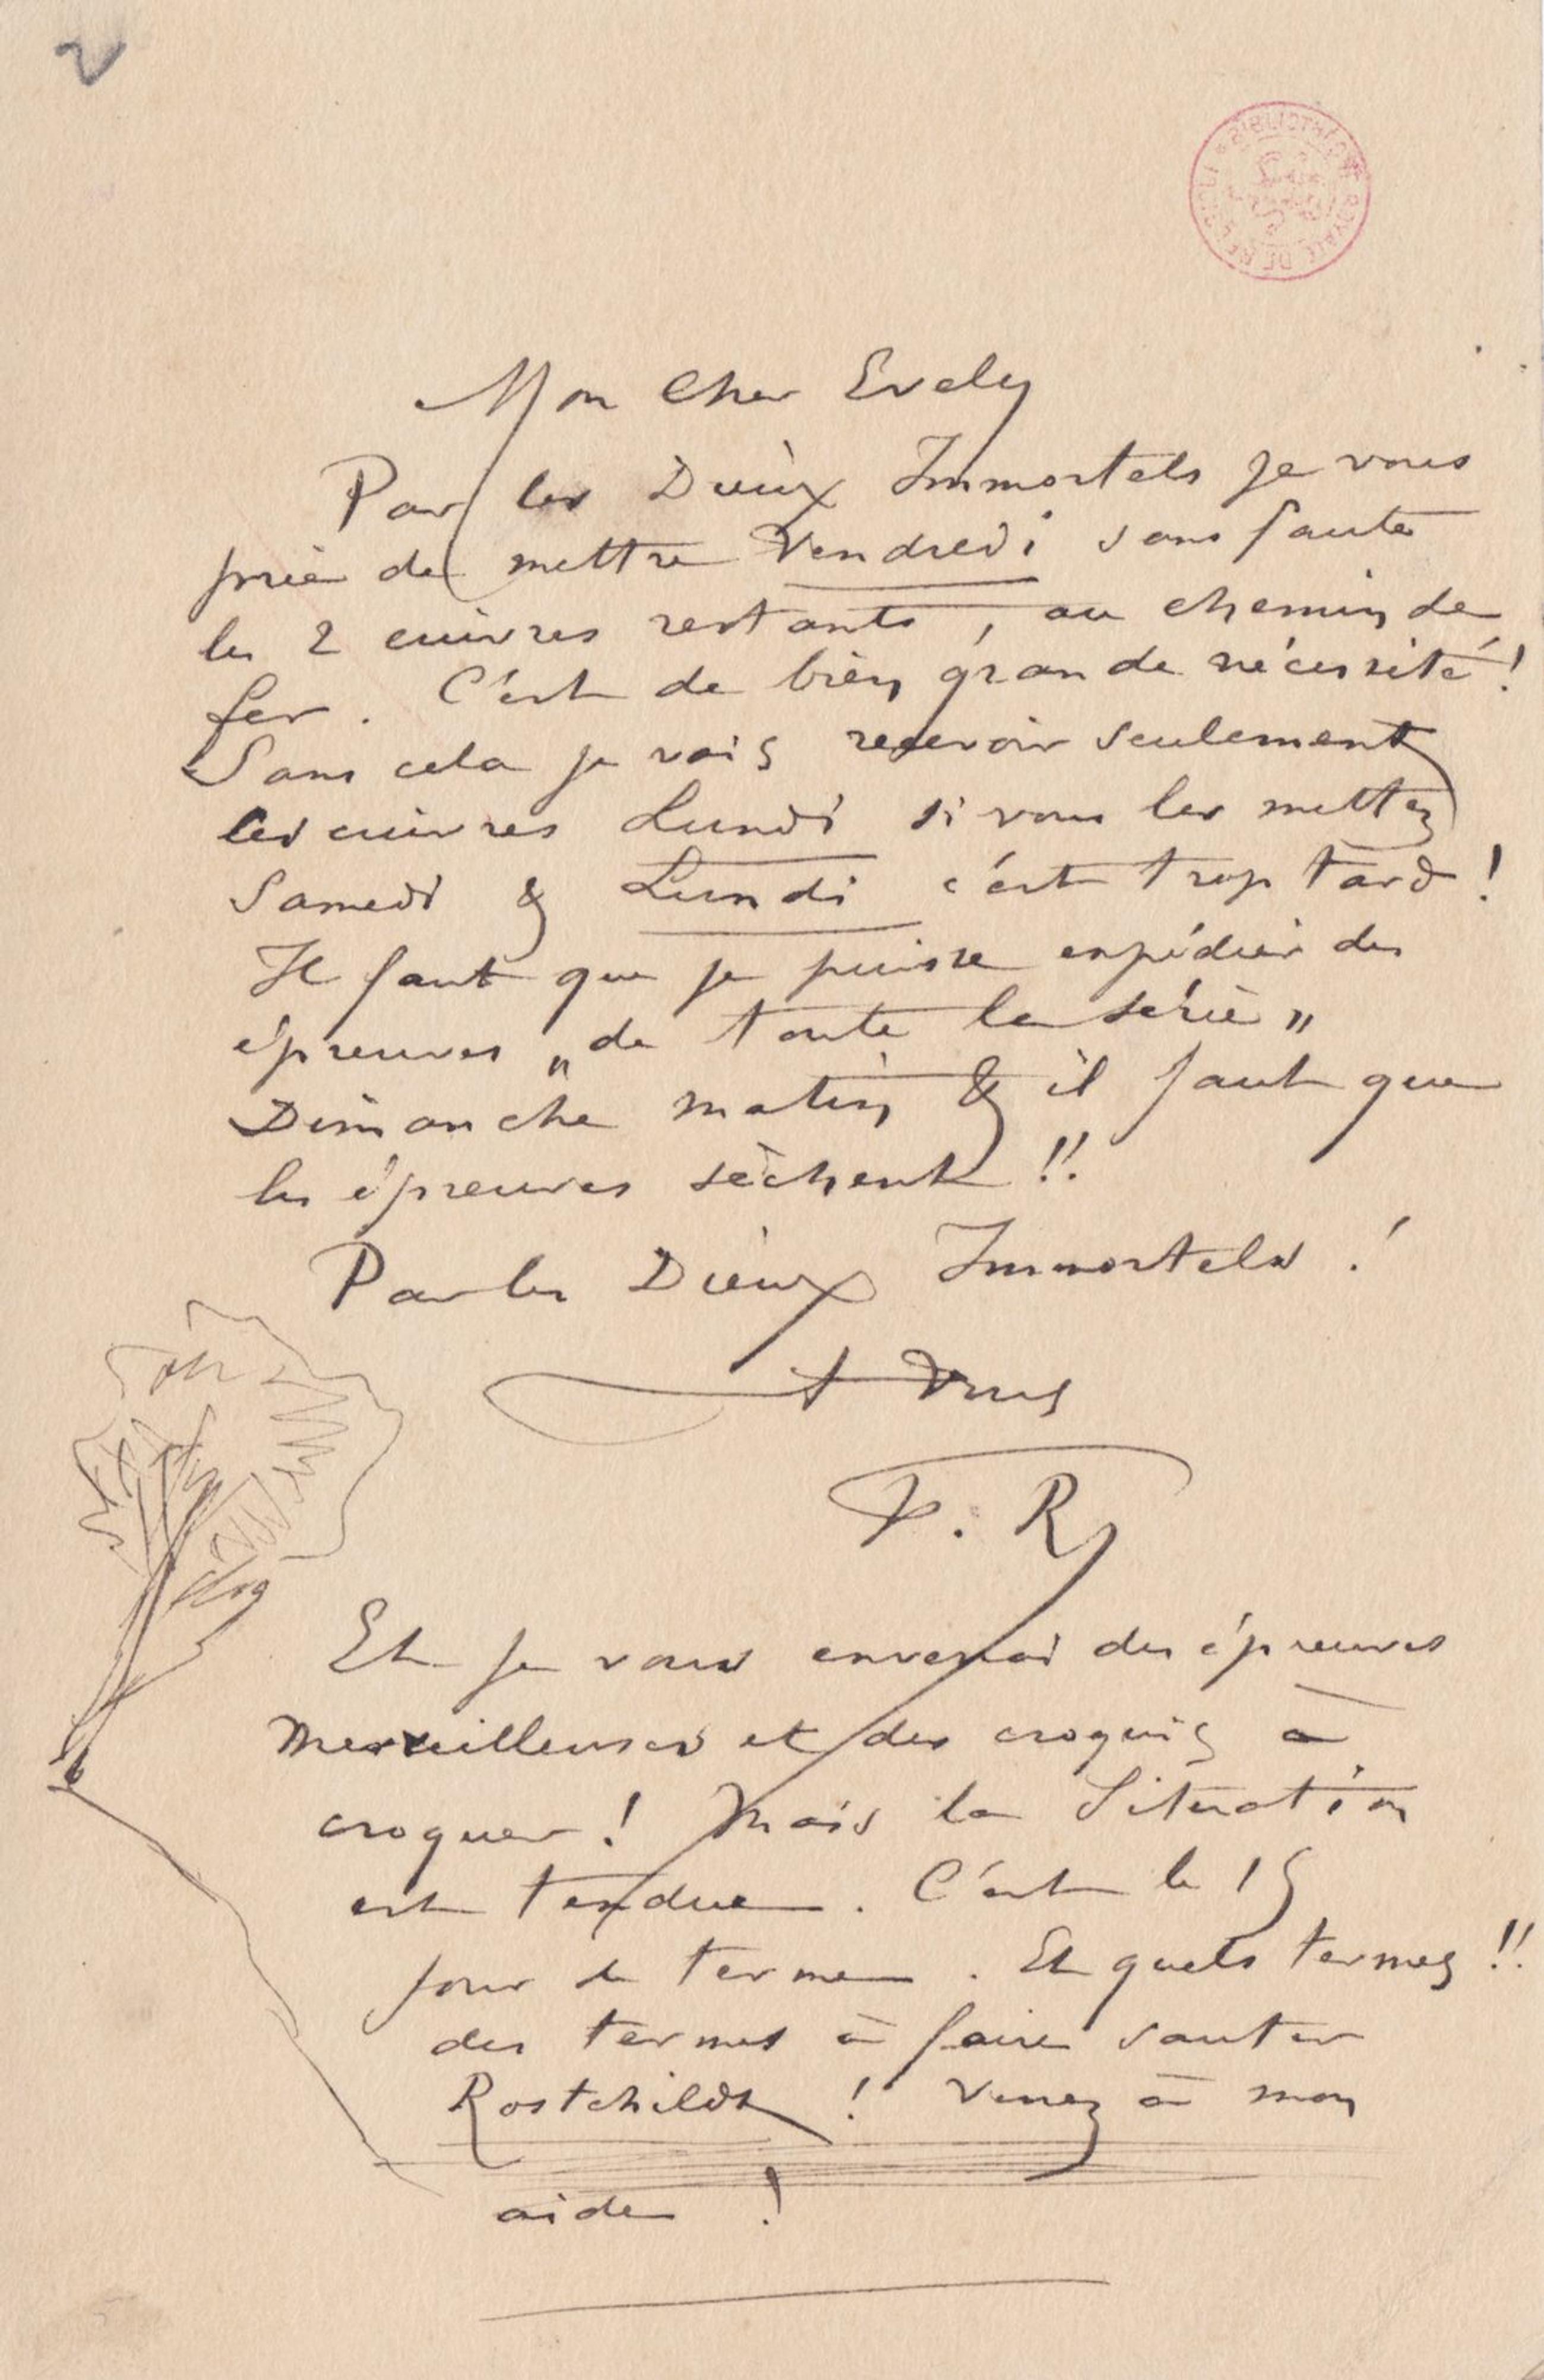 V
BIBLIOTHÈQUE ROYALE DE BELGIQUE
Mon Cher Evely
Par les Dieux Immortels je vous
prie de mettre Vendredi sans faute
les 2 cuivres restants, au chemin de
fer. C'est de bien grande nécessité!
Sans cela je vais recevoir seulement
les cuivres Lundi si vous les mettez
Samedi & Lundi c'est trop tard!
Il faut que je puisse expédier des
épreuves „de toute la série„
Dimanche matin & il faut que
les épreuves sèchent!!
Par les Dieux Immortels!
A Vous
F. R
Et je vous enverrai des épreuves
merveilleuses et des croquis à
croquer! Mais la Situation
est tendue. C'est le 15
jour de terme. Et quels termes!!
des termes à faire sauter
Rostchildt! Venez à mon
aide!